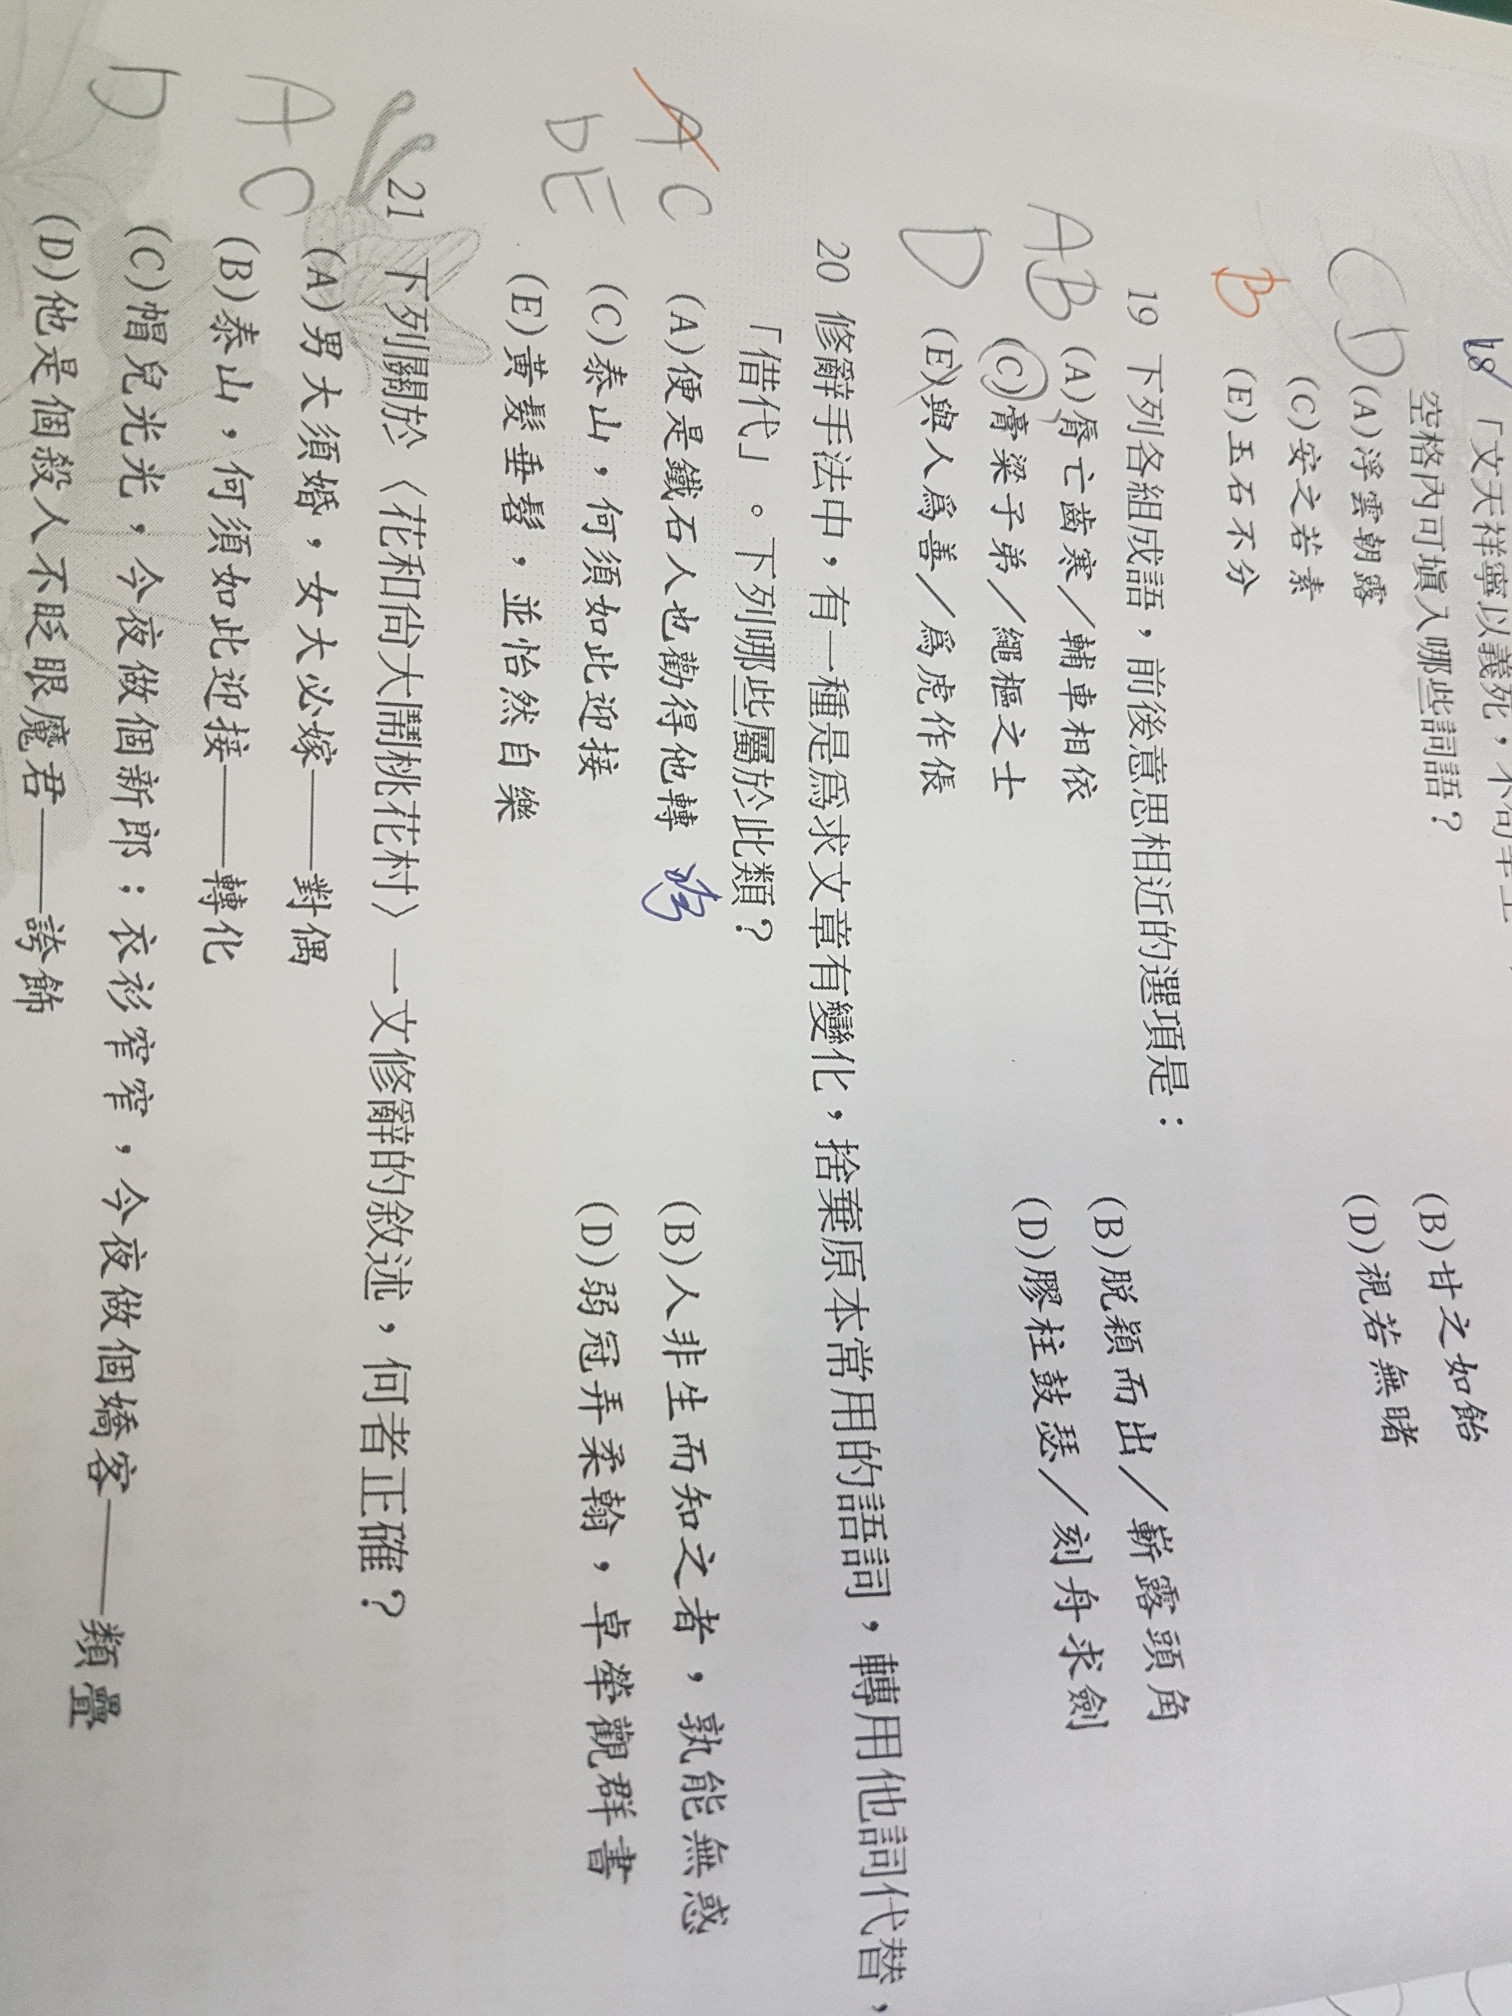 18 「文天祥寧以義死，不苟
空格內可填入哪些詞語？
(A)浮雲朝露 (B)甘之如飴
(C)安之若素 (D)視若無睹
(E)玉石不分
CD
B
19 下列各組成語，前後意思相近的選項是：
(A)脣亡齒寒／輔車相依 (B)脫穎而出／嶄露頭角
(C)膏粱子弟／繩樞之士 (D)膠柱鼓瑟／刻舟求劍
(E)與人為善／為虎作倀
AB
D
20 修辭手法中，有一種是為求文章有變化，捨棄原本常用的語詞，轉用他詞代替，
「借代」。下列哪些屬於此類？
(A)便是鐵石人也勸得他轉 (B)人非生而知之者，孰能無惑
(C)泰山，何須如此迎接 (D)弱冠弄柔翰，卓犖觀群書
(E)黃髮垂髫，並怡然自樂
AC
DE
21 下列關於〈花和尚大鬧桃花村〉一文修辭的敘述，何者正確？
(A)男大須婚，女大必嫁——對偶
(B)泰山，何須如此迎接——轉化
(C)帽兒光光，今夜做個新郎；衣衫窄窄，今夜做個嬌客——類疊
(D)他是個殺人不眨眼魔君——誇飾
AC
D